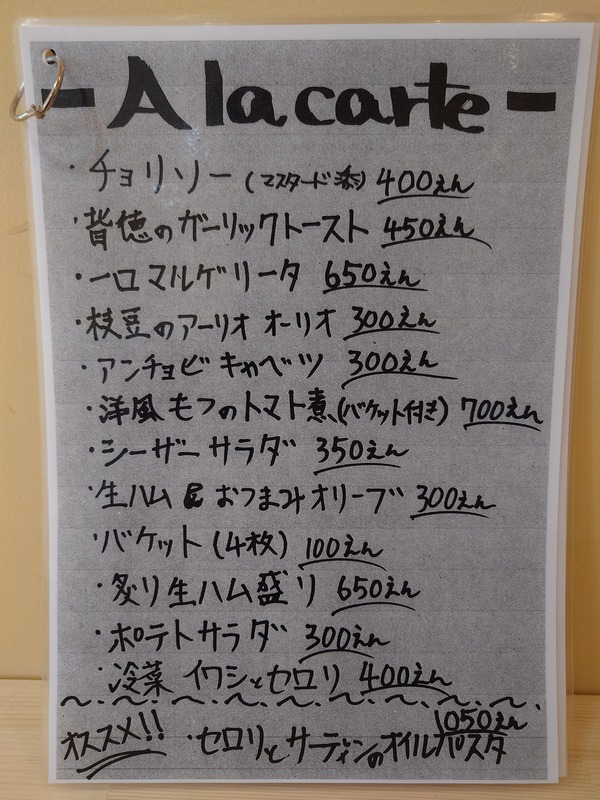 - A la carte -
・チョリソー (マスタード添) 400えん
・背徳のガーリックトースト 450えん
・一口マルゲリータ 650えん
・枝豆のアーリオオーリオ 300えん
・アンチョビキャベツ 300えん
・洋風もつのトマト煮(バケット付き) 700えん
・シーザーサラダ 350えん
・生ハム & おつまみオリーブ 300えん
・バケット (4枚) 100えん
・炙り生ハム盛り 650えん
・ポテトサラダ 300えん
・冷菜 イワシとセロリ 400えん
1050えん
オススメ!! ・セロリとサーディンのオイルパスタ